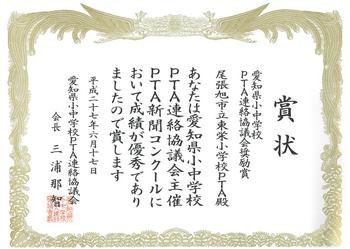 賞状
愛知県小中学校
PTA連絡協議会奨励賞
尾張旭市立東栄小学校PTA殿
あなたは愛知県小中学校
PTA連絡協議会主催
PTA新聞コンクールに
おいて成績が優秀であり
ましたので賞します
平成二十七年六月十七日
愛知県小中学校PTA連絡協議会
会長 三浦那智